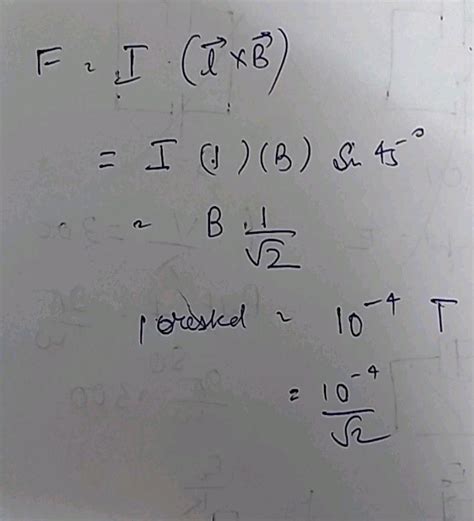 F = I (l⃗ × B⃗)
= I (1) (B) Sin 45°
= B 1/√2
= 10⁻⁴ T
= 10⁻⁴/√2